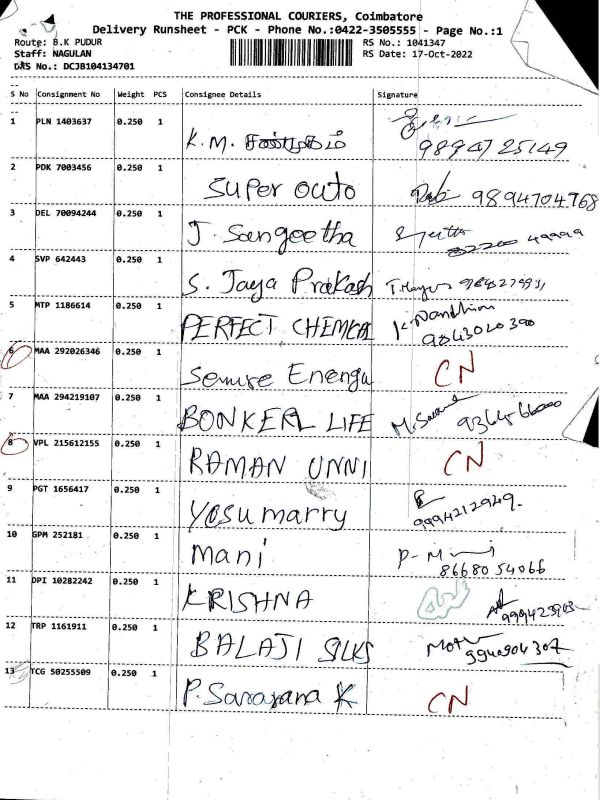 THE PROFESSIONAL COURIERS, Coimbatore
Delivery Runsheet - PCK - Phone No.:0422-3505555 - Page No.:1
Route: B.K PUDUR RS No.: 1041347
Staff: NAGULAN RS Date: 17-Oct-2022
DRS No.: DCJB104134701
S No Consignment No Weight PCS Consignee Details Signature
1 PLN 1403637 0.250 1 K.M. 9894725149
2 PDK 7003456 0.250 1 Super auto 9894704768
3 DEL 70094244 0.250 1 J. Sangeetha
4 SVP 642443 0.250 1 S. Jaya Prakash
5 MTP 1186614 0.250 1 PERFECT CHEMICAL K. Nandhini
9843020390
6 MAA 292026346 0.250 1 CN
7 MAA 294219107 0.250 1 BONKERL LIFE
8 VPL 215612155 0.250 1 RAMAN UNNI CN
9 PGT 1656417 0.250 1 Yosu marry 9994212949.
10 GPM 252181 0.250 1 Mani P-Mani
8668054066
11 DPI 10282242 0.250 1 KRISHNA
12 TRP 1161911 0.250 1 BALAJI SILKS 9940904307
13 TCG 50255509 0.250 1 P. Saravana K CN